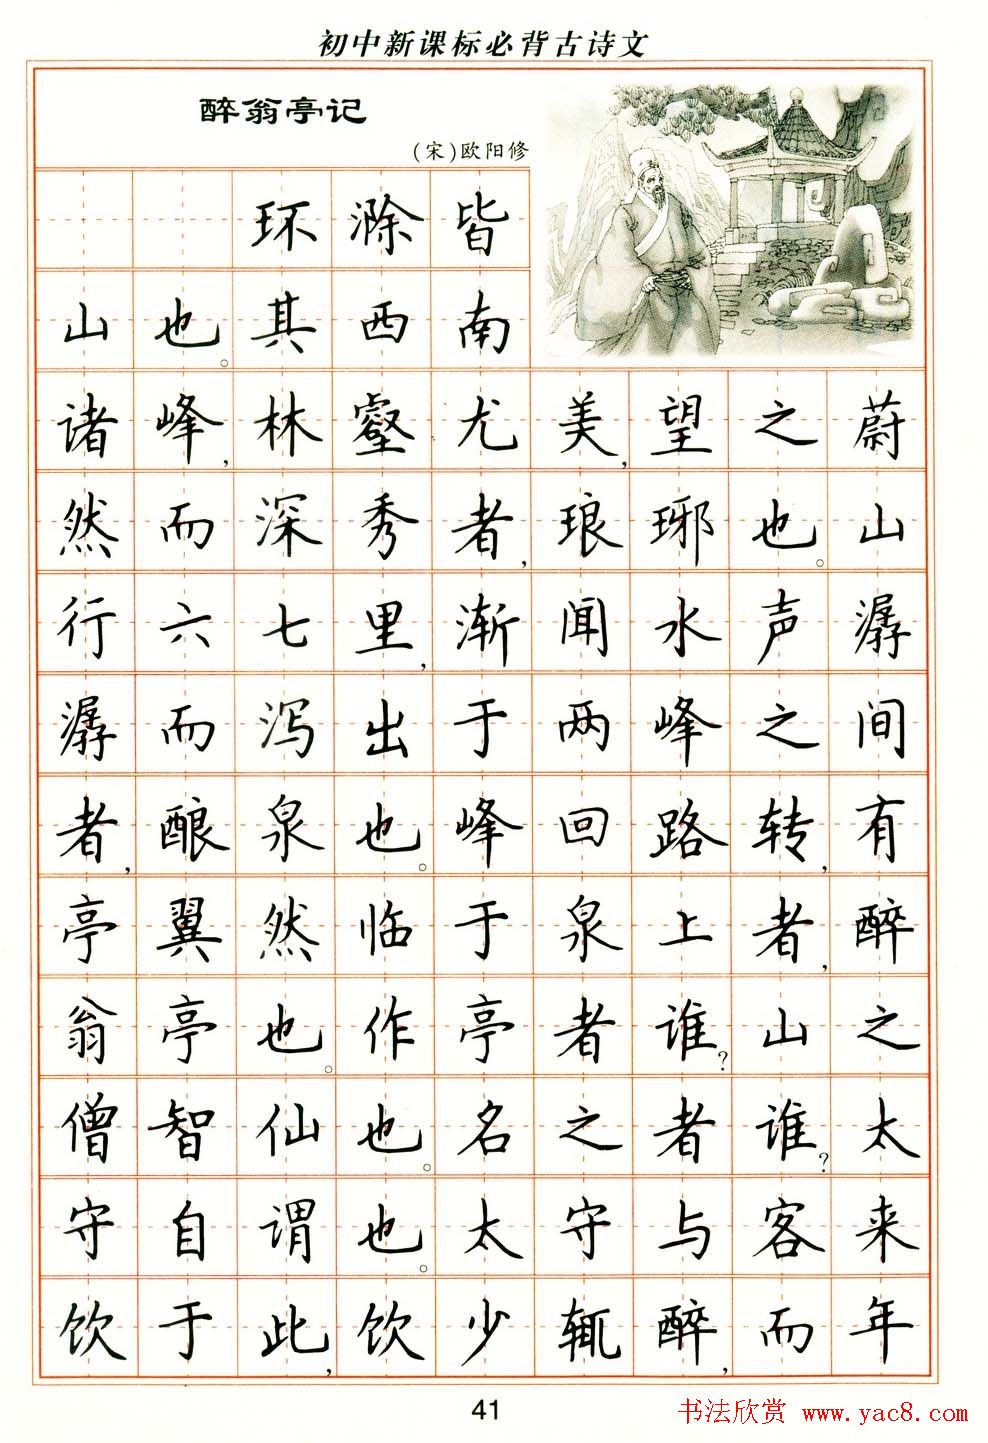 初中新课标必背古诗文
醉翁亭记
(宋)欧阳修
环滁皆
山也。其西南
诸峰,林壑尤美,望之蔚
然而深秀者,琅琊也。山
行六七里,渐闻水声潺
潺而泻出于两峰之间
者,酿泉也。峰回路转,有
亭翼然临于泉上者,醉
翁亭也。作亭者谁?山之
僧智仙也。名之者谁?太
守自谓也。太守与客来
饮于此,饮少辄醉,而年
41
书法欣赏 www.yac8.com